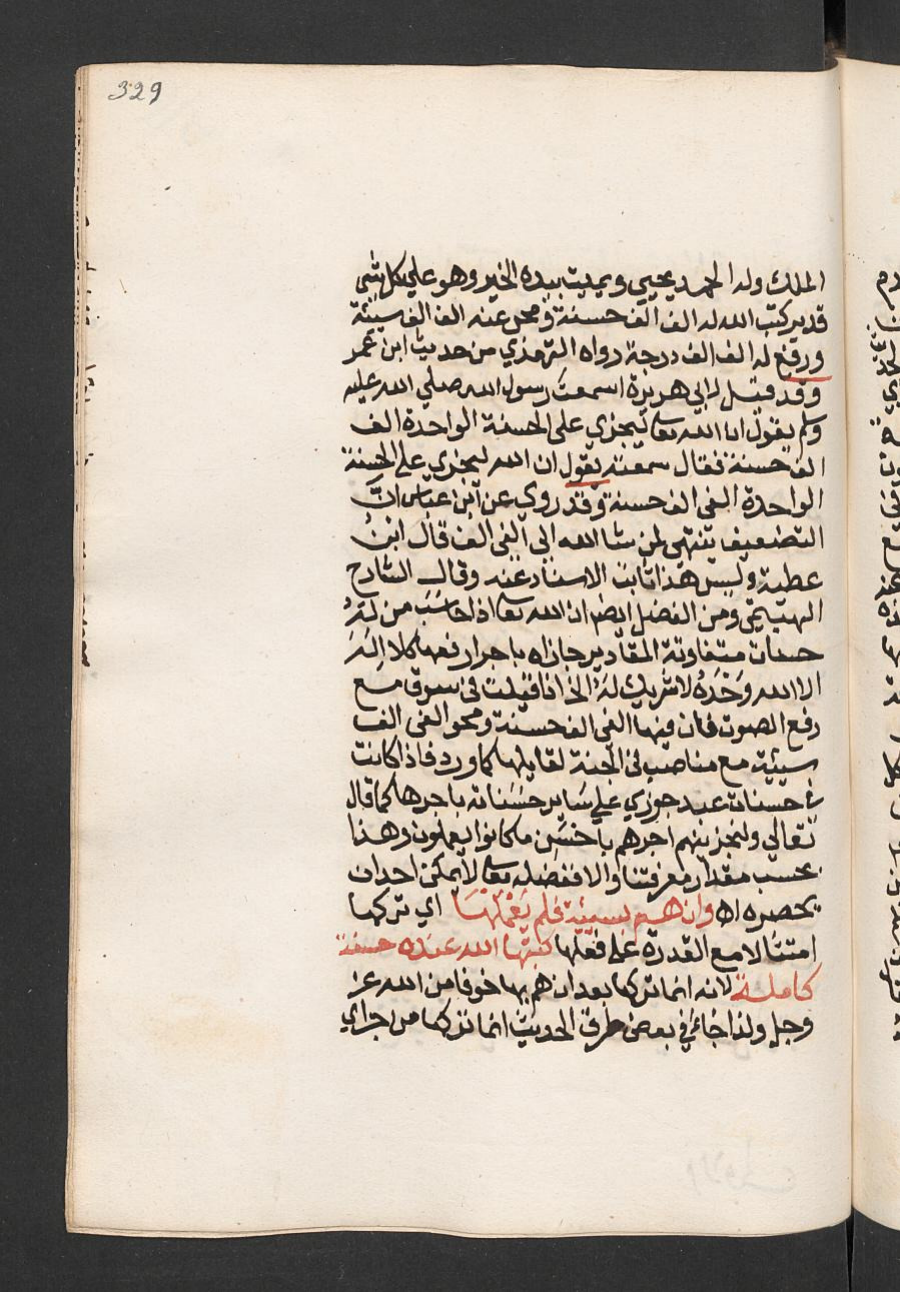 329
الملك وله الحمد يحيي ويميت بيده الخير وهو علي كل شي
قدير كتب الله له الف الف حسنة ومحي عنه الف الف سيئة
ورفع له الف الف درجة رواه الترمذي من حديث ابن عمر
وقد قيل لابي هريرة اسمعت رسول الله صلي الله عليه
وسلم يقول ان الله تعا ليجزي على الحسنة الواحدة الف
الف حسنة فقال سمعته يقول ان الله ليجزي على الحسنة
الواحدة الفي الف حسنة وقد روي عن ابن عباس ان
التضعيف ينتهي لمن شا الله الى الفي الف قال ابن
عطية وليس هذا ثابت الاسناد عنه وقال الشارح
الهيتمي ومن الفضل ايضا ان الله تعا اذا حاسب من له
حسنات متفاوتة المقادير جازاه باجرار فعها كلا اله
الا الله وحده لا شريك له الخ اذا قيلت في سوق مع
رفع الصوت فان فيها الفي الف حسنة ومحو الفي الف
سيئة مع مناصب في الجنة لقايلها كما ورد فاذا كانت
في حسنات عبد جوزي علي ساير حسناته باجرها كما قال
تعالي ولنجزينهم اجرهم باحسن ما كانوا يعملون وهذا
بحسب مقدار معرفتنا والا ففضله تعا لا يمكن احد ان
يحصره اه وان هم بسيئة فلم يعملها اي تركها
امتثالا مع القدرة على فعلها كتبها الله عنده حسنة
كاملة لانه انما تركها بعد ان هم بها خوفا من الله عز
وجل ولذا جا في بعض طرق الحديث انما تركها من اجراي